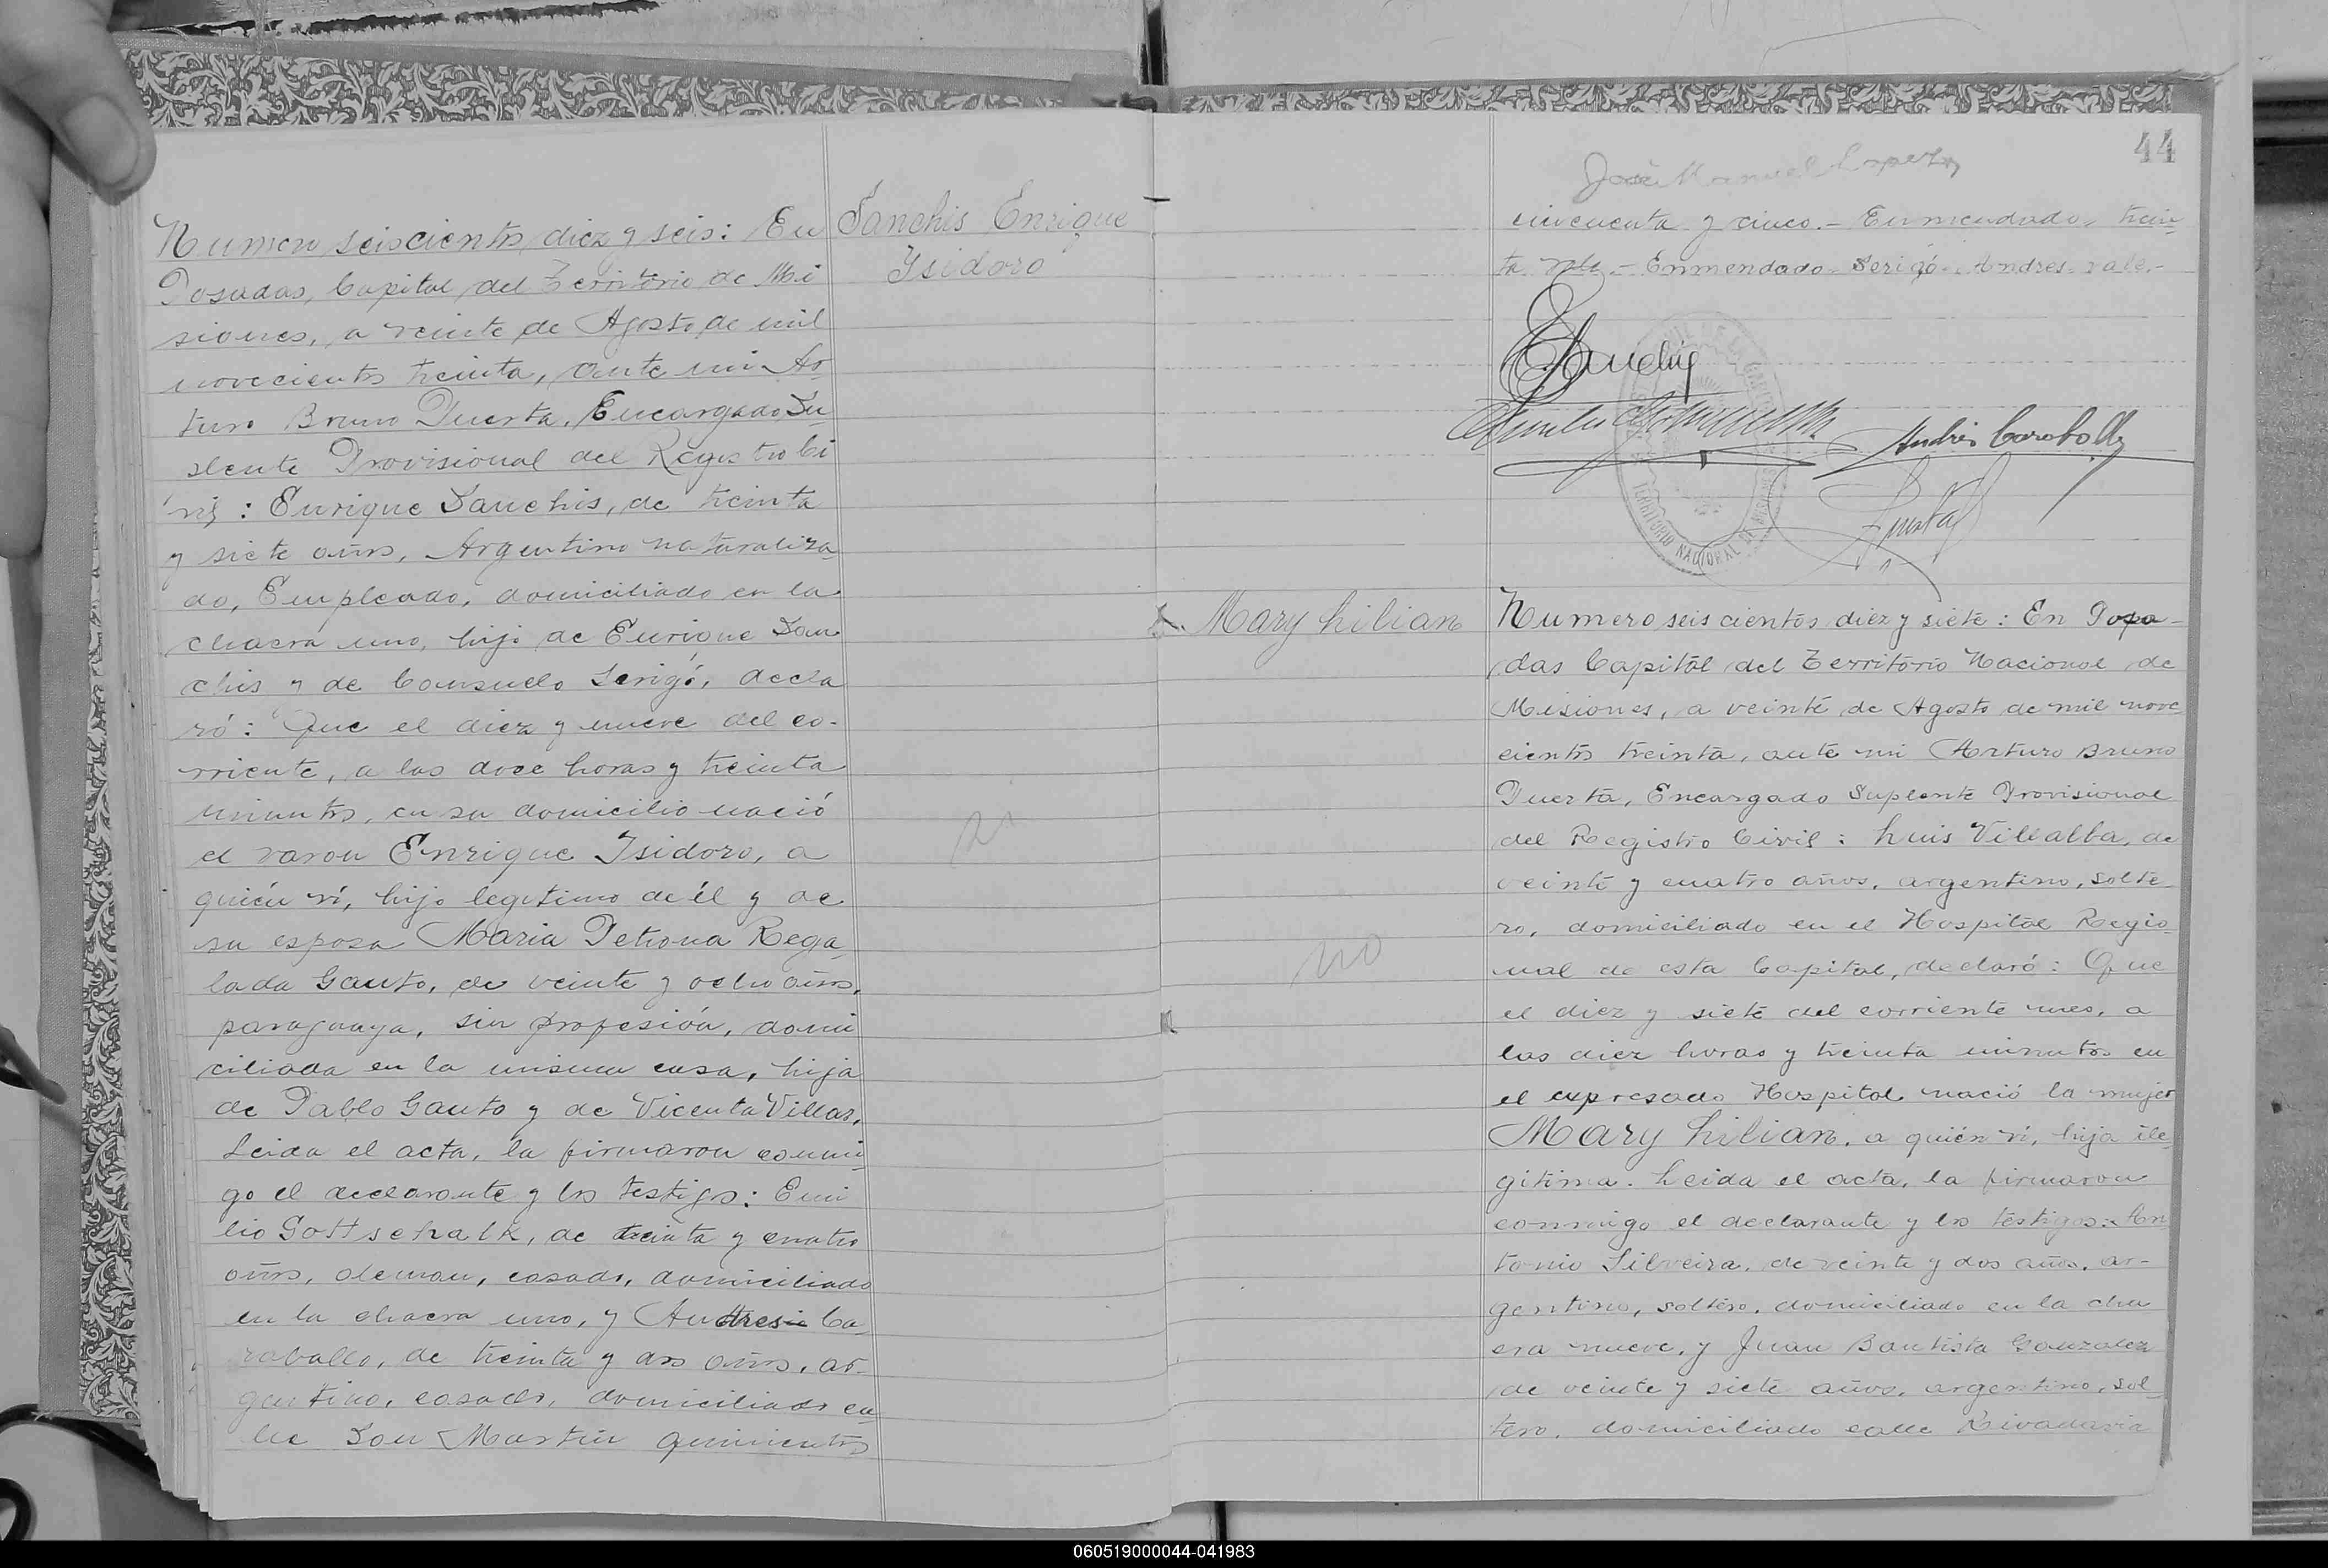 Sanchis Enrique
Isidoro
Numero seiscientos diez y seis: En
Posadas, Capital del Territorio de Mi
siones, a veinte de Agosto de mil
novecientos treinta, ante mi Ar
turo Bruno Puerta, Encargado Su
plente Provisional del Registro Ci
vil: Enrique Sanchis, de treinta
y siete años, Argentino naturaliza
do, Empleado, domiciliado en la
chacra uno, hijo de Enrique San
chis y de Consuelo Serigó, decla
ró: Que el diez y nueve del co-
rriente, a las doce horas y treinta
minutos, en su domicilio nació
el varon Enrique Isidoro, a
quién ví, hijo legitimo de él y de
su esposa Maria Petrona Rega
lada Gauto, de veinte y ocho años,
paraguaya, sin profesión, domi
ciliada en la misma casa, hija
de Pablo Gauto y de Vicenta Villar.
Leida el acta, la firmaron conmi
go el declarante y los testigos: Emi
lio Gottschalk, de treinta y cuatro
años, aleman, casado, domiciliado
en la chacra uno, y Andres Ca
raballo, de treinta y dos años, ar-
gentino, casado, domiciliado ca
lle San Martin quinientos
44
José Manuel Lopez
cincuenta y cinco.- Enmendado- trein
ta vale.- Enmendado- Serigó- Andres- vale.-
ESanchis
Andrés Caraballo
Puerta
TERRITORIO NACIONAL DE MISIONES
Mary Lilian
Numero seiscientos diez y siete: En Posa-
das Capital del Territorio Nacional de
Misiones, a veinte de Agosto de mil nove
cientos treinta, ante mi Arturo Bruno
Puerta, Encargado Suplente Provisional
del Registro Civil: Luis Villalba, de
veinte y cuatro años, argentino, solte
ro, domiciliado en el Hospital Regio
nal de esta Capital, declaró: Que
el diez y siete del corriente mes, a
las diez horas y treinta minutos en
el expresado Hospital nació la mujer
Mary Lilian, a quién ví, hija ile
gitima. Leida el acta, la firmaron
conmigo el declarante y los testigos: An
tonio Silveira, de veinte y dos años, ar-
gentino, soltero, domiciliado en la cha
cra nueve, y Juan Bautista Gonzalez
de veinte y siete años, argentino, sol
tero, domiciliado calle Rivadavia
no
060519000044-041983